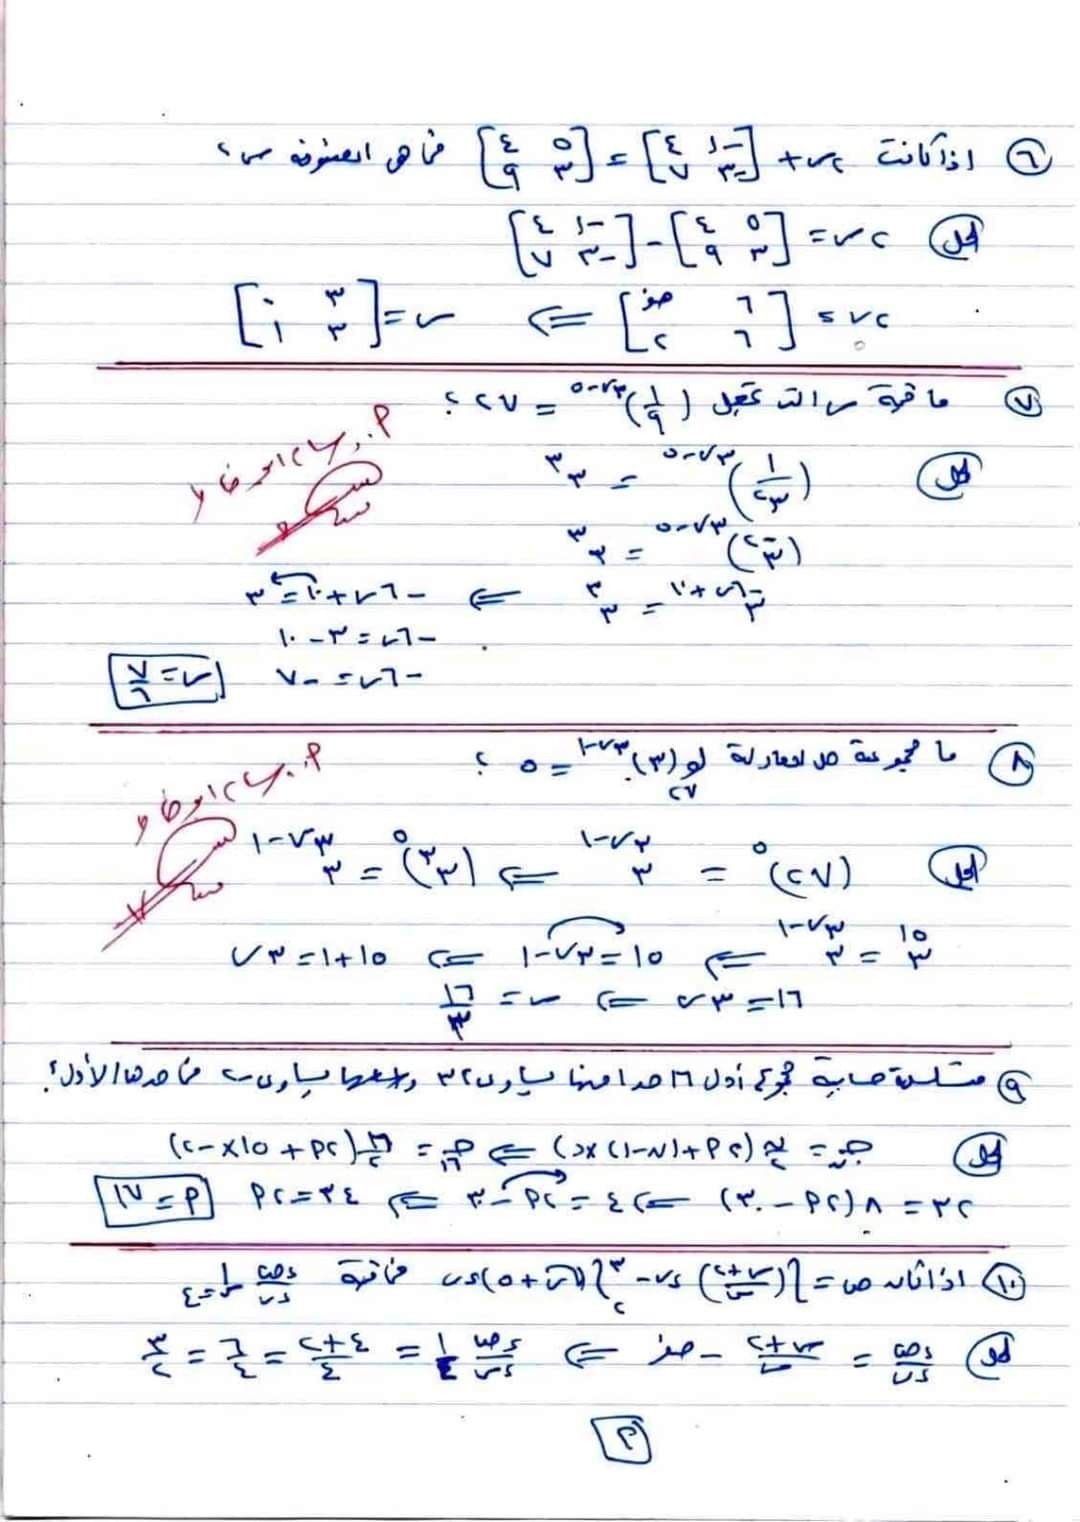 ٦ اذا كانت ٢س + [-١ ٤ ; -٣ ٧] = [٥ ٤ ; ٣ ٩] فما هي المصفوفة س؟
الحل ٢س = [٥ ٤ ; ٣ ٩] - [-١ ٤ ; -٣ ٧]
٢س = [٦ صفر ; ٦ ٢] ⇐ س = [٣ ٠ ; ٣ ١]
٧ ما قيمة س التي تجعل (١/٩)^(٣س-٥) = ٢٧؟
الحل (١/٣^٢)^(٣س-٥) = ٣^٣
(٣^-٢)^(٣س-٥) = ٣^٣
٣^(-٦س+١٠) = ٣^٣ ⇐ -٦س+١٠=٣
-٦س = ٣-١٠
-٦س = -٧ س = ٧/٦
٨ ما مجموعة حل المعادلة لو_٢٧ (٣)^(٣س-١) = ٥ ؟
الحل (٢٧)^٥ = ٣^(٣س-١) ⇐ (٣^٣)^٥ = ٣^(٣س-١)
٣^١٥ = ٣^(٣س-١) ⇐ ١٥=٣س-١ ⇐ ١٥+١=٣س
١٦=٣س ⇐ س = ١٦/٣
٩ متسلسلة حسابية مجموع أول ١٦ حدا منها يساوي ٣٢ يساوي -٢ فما حدها الأول؟
الحل جـن = ن/٢ (٢م+(ن-١)×د) ⇐ جـ١٦ = ١٦/٢ (٢م + ١٥×-٢)
٣٢ = ٨(٢م - ٣٠) ⇐ ٤ = ٢م - ٣٠ ⇐ ٣٤=٢م م = ١٧
١٠ اذا كان ص = ∫((س+٢)/س) ءس - ∫_٢^٣ (√س+٥)ءس فما قيمة ءص/ءس | س=٤
الحل ءص/ءس = (س+٢)/س - صفر ⇐ ءص/ءس |٤ = (٤+٢)/٤ = ٦/٤ = ٣/٢